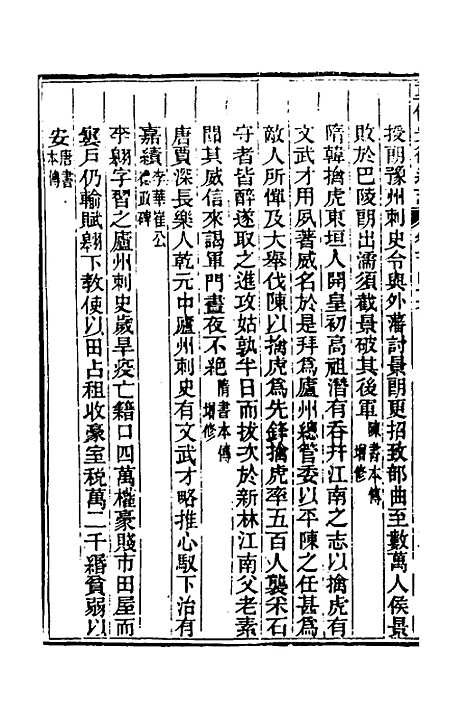 授朗豫州刺史令與外藩討景朗更招致部曲至數萬人侯景
敗於巴陵朗出濡須截景破其後軍陳書本傳增修
隋韓擒虎東垣人開皇初高祖潛有吞并江南之志以擒虎有
文武才用夙著威名於是拜爲廬州總管委以平陳之任甚爲
敵人所憚及大舉伐陳以擒虎爲先鋒擒虎率五百人襲采石
守者皆醉遂取之進攻姑孰半日而拔次於新林江南父老素
聞其威信來謁軍門晝夜不絶隋書本傳增修
唐賈深長樂人乾元中廬州刺史有文武才略推心馭下治有
嘉績李華崔公德政碑
李翱字習之廬州刺史歲旱疫亡籍口四萬權豪賤市田屋而
窶戸仍輸賦翱下教使以田占租收豪室税萬二千緡貧弱以
安唐書本傳